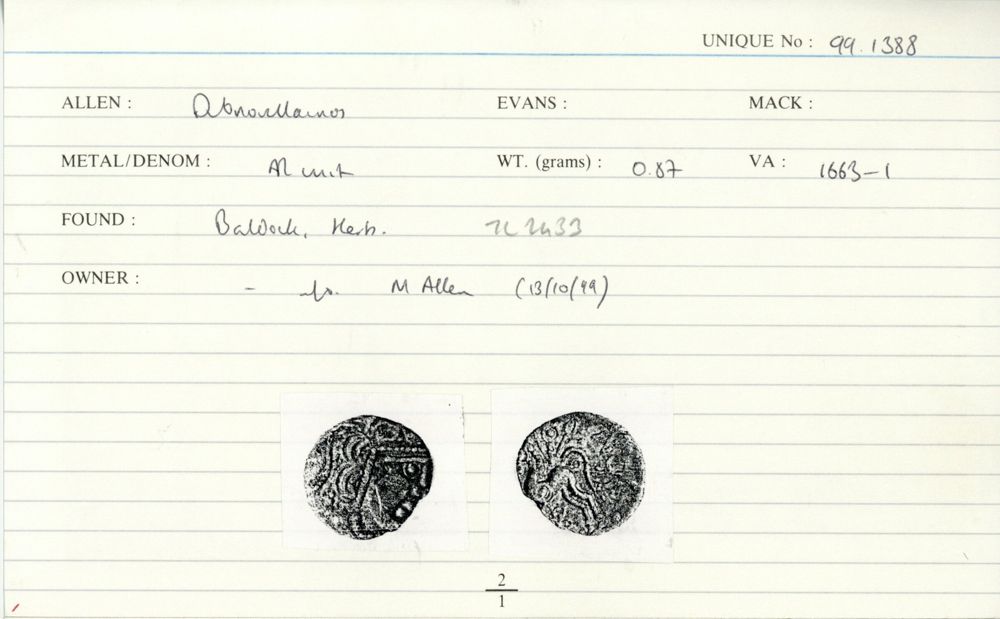 UNIQUE No : 99.1388
ALLEN : Dubnovellaunos EVANS : MACK :
METAL/DENOM : AR unit WT. (grams) : 0.87 VA : 1663-1
FOUND : Baldock, Herts. TL 2433
OWNER : - M Allen (13/10/99)
2
1